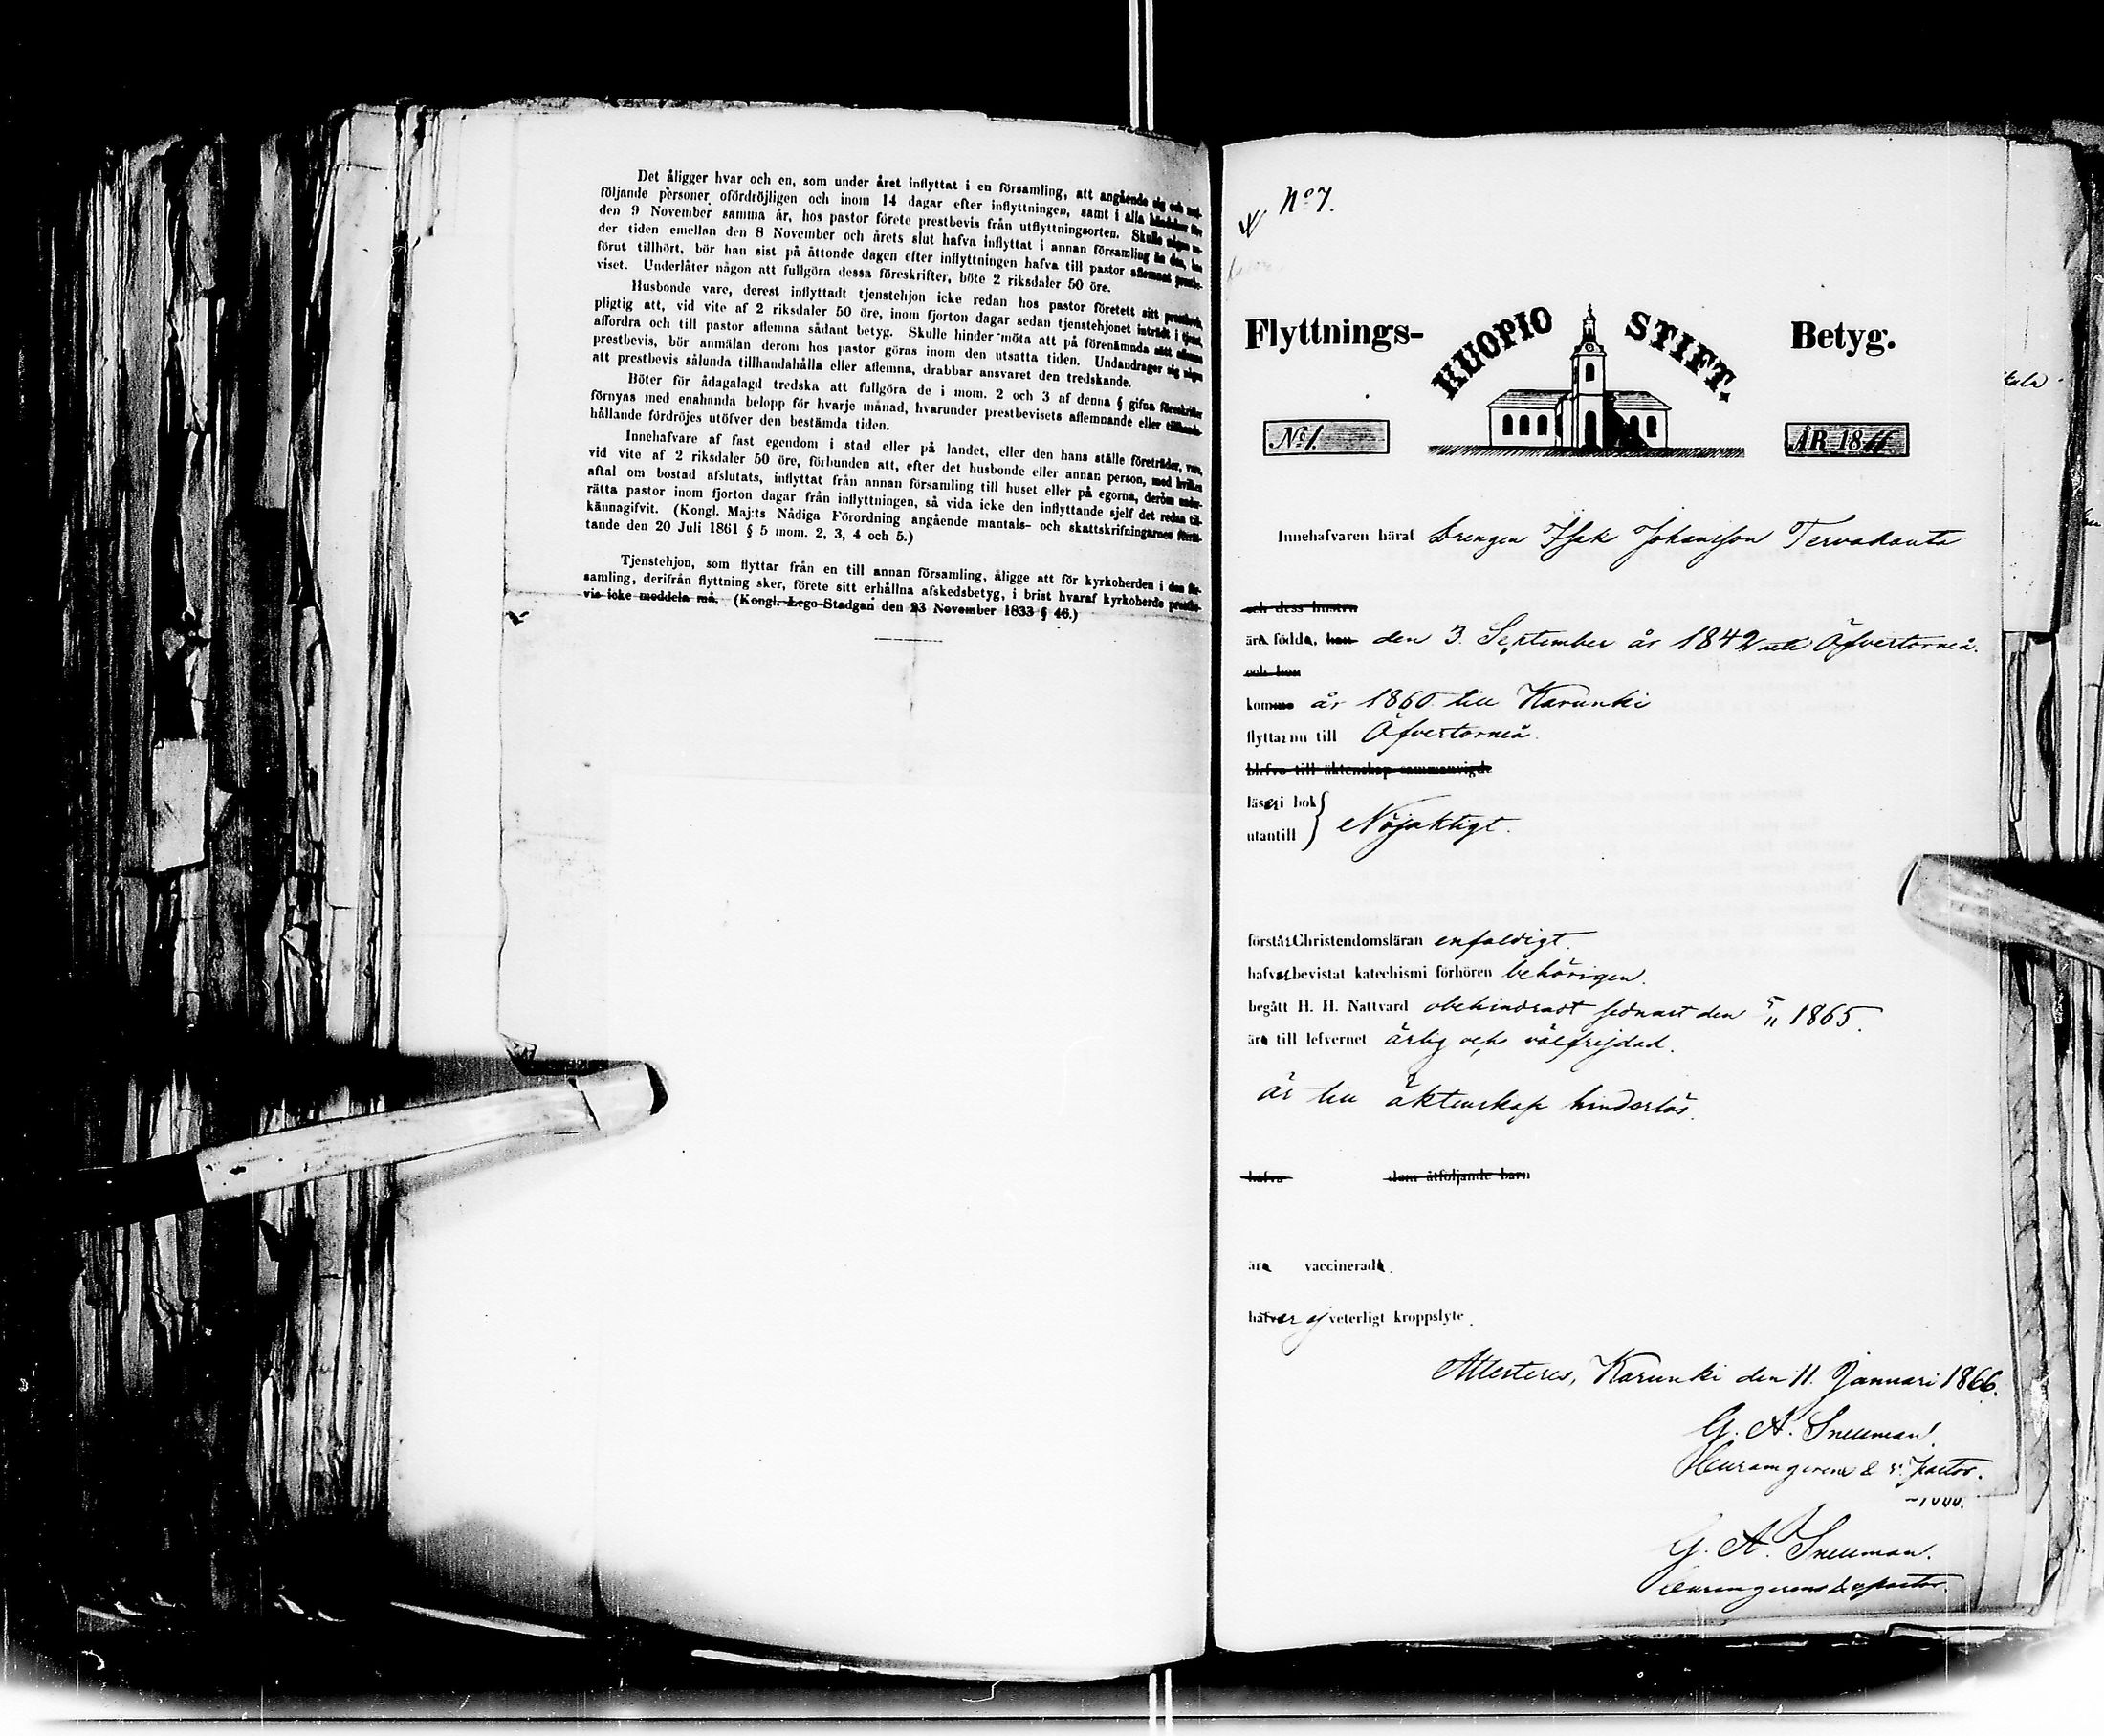 Det åligger hvar och en, som under året inflyttat i en församling, att angående sig och med-
följande personer ofördröjligen och inom 14 dagar efter inflyttningen, samt i alla händelser före
den 9 November samma år, hos pastor förete prestbevis från utflyttningsorten. Skulle någon un-
der tiden emellan den 8 November och årets slut hafva inflyttat i annan församling än den, han
förut tillhört, bör han sist på åttonde dagen efter inflyttningen hafva till pastor aflemnat prestbe-
viset. Underlåter någon att fullgöra dessa föreskrifter, böte 2 riksdaler 50 öre.
Husbonde vare, derest inflyttadt tjenstehjon icke redan hos pastor företett sitt prestbevis,
pligtig att, vid vite af 2 riksdaler 50 öre, inom fjorton dagar sedan tjenstehjonet inträdt i tjenst,
affordra och till pastor aflemna sådant betyg. Skulle hinder möta att på förenämnda sätt aflemna
prestbevis, bör anmälan derom hos pastor göras inom den utsatta tiden. Undandrager sig någon
att prestbevis sålunda tillhandahålla eller aflemna, drabbar ansvaret den tredskande.
Böter för ådagalagd tredska att fullgöra de i mom. 2 och 3 af denna § gifna föreskrifter
förnyas med enahanda belopp för hvarje månad, hvarunder prestbevisets aflemnande eller tillhanda-
hållande fördröjes utöfver den bestämda tiden.
Innehafvare af fast egendom i stad eller på landet, eller den hans ställe företräder, vare,
vid vite af 2 riksdaler 50 öre, förbunden att, efter det husbonde eller annan person, med hvilken
aftal om bostad afslutats, inflyttat från annan församling till huset eller på egorna, derom under-
rätta pastor inom fjorton dagar från inflyttningen, så vida icke den inflyttande sjelf det redan till-
kännagifvit. (Kongl. Maj:ts Nådiga Förordning angående mantals- och skattskrifningarnes förrät-
tande den 20 Juli 1861 § 5 mom. 2, 3, 4 och 5.)
Tjenstehjon, som flyttar från en till annan församling, åligge att för kyrkoherden i den för-
samling, derifrån flyttning sker, förete sitt erhållna afskedsbetyg, i brist hvaraf kyrkoherde prestbe-
vis icke meddela må. (Kongl. Lego-Stadgan den 23 November 1833 § 46.)
No 7.
Flyttnings- KUOPIO STIFT. Betyg.
No 1. ÅR 1866
Innehafvaren häraf Drengen Isak Johansson Tervakanta
och dess hustru
ära födda, han den 3. September år 1842 uti Öfvertorneå.
och hon
kommo år 1860 till Karunki
flyttar nu till Öfvertorneå.
blefvo till äktenskap sammanvigde
läser i bok
utantill } Nöjaktigt.
förstår Christendomsläran enfaldigt.
hafver bevistat katechismi förhören behörigen.
begått H. H. Nattvard obehindradt sednast den 5/11 1865.
ära till lefvernet ärlig och välfrejdad.
är till äktenskap hinderlös.
hafva dem åtföljande barn
ära vaccinerade.
hafver ej veterligt kroppslyte.
Attesteres, Karunki den 11. Januari 1866.
G. A. Snellman.
Curam gerens & v. pastor.
G. A. Snellman.
Curam gerens & v. pastor.